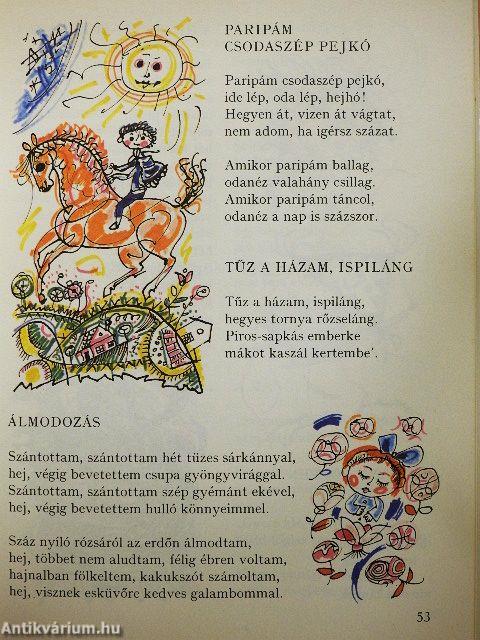 PARIPÁM
CSODASZÉP PEJKÓ
Paripám csodaszép pejkó,
ide lép, oda lép, hejhó!
Hegyen át, vizen át vágtat,
nem adom, ha igérsz százat.
Amikor paripám ballag,
odanéz valahány csillag.
Amikor paripám táncol,
odanéz a nap is százszor.
TŰZ A HÁZAM, ISPILÁNG
Tűz a házam, ispiláng,
hegyes tornya rőzseláng.
Piros-sapkás emberke
mákot kaszál kertembe'.
ÁLMODOZÁS
Szántottam, szántottam hét tüzes sárkánnyal,
hej, végig bevetettem csupa gyöngyvirággal.
Szántottam, szántottam szép gyémánt ekével,
hej, végig bevetettem hulló könnyeimmel.
Száz nyíló rózsáról az erdőn álmodtam,
hej, többet nem aludtam, félig ébren voltam,
hajnalban fölkeltem, kakukszót számoltam,
hej, visznek esküvőre kedves galambommal.
53
Antikvárium.hu